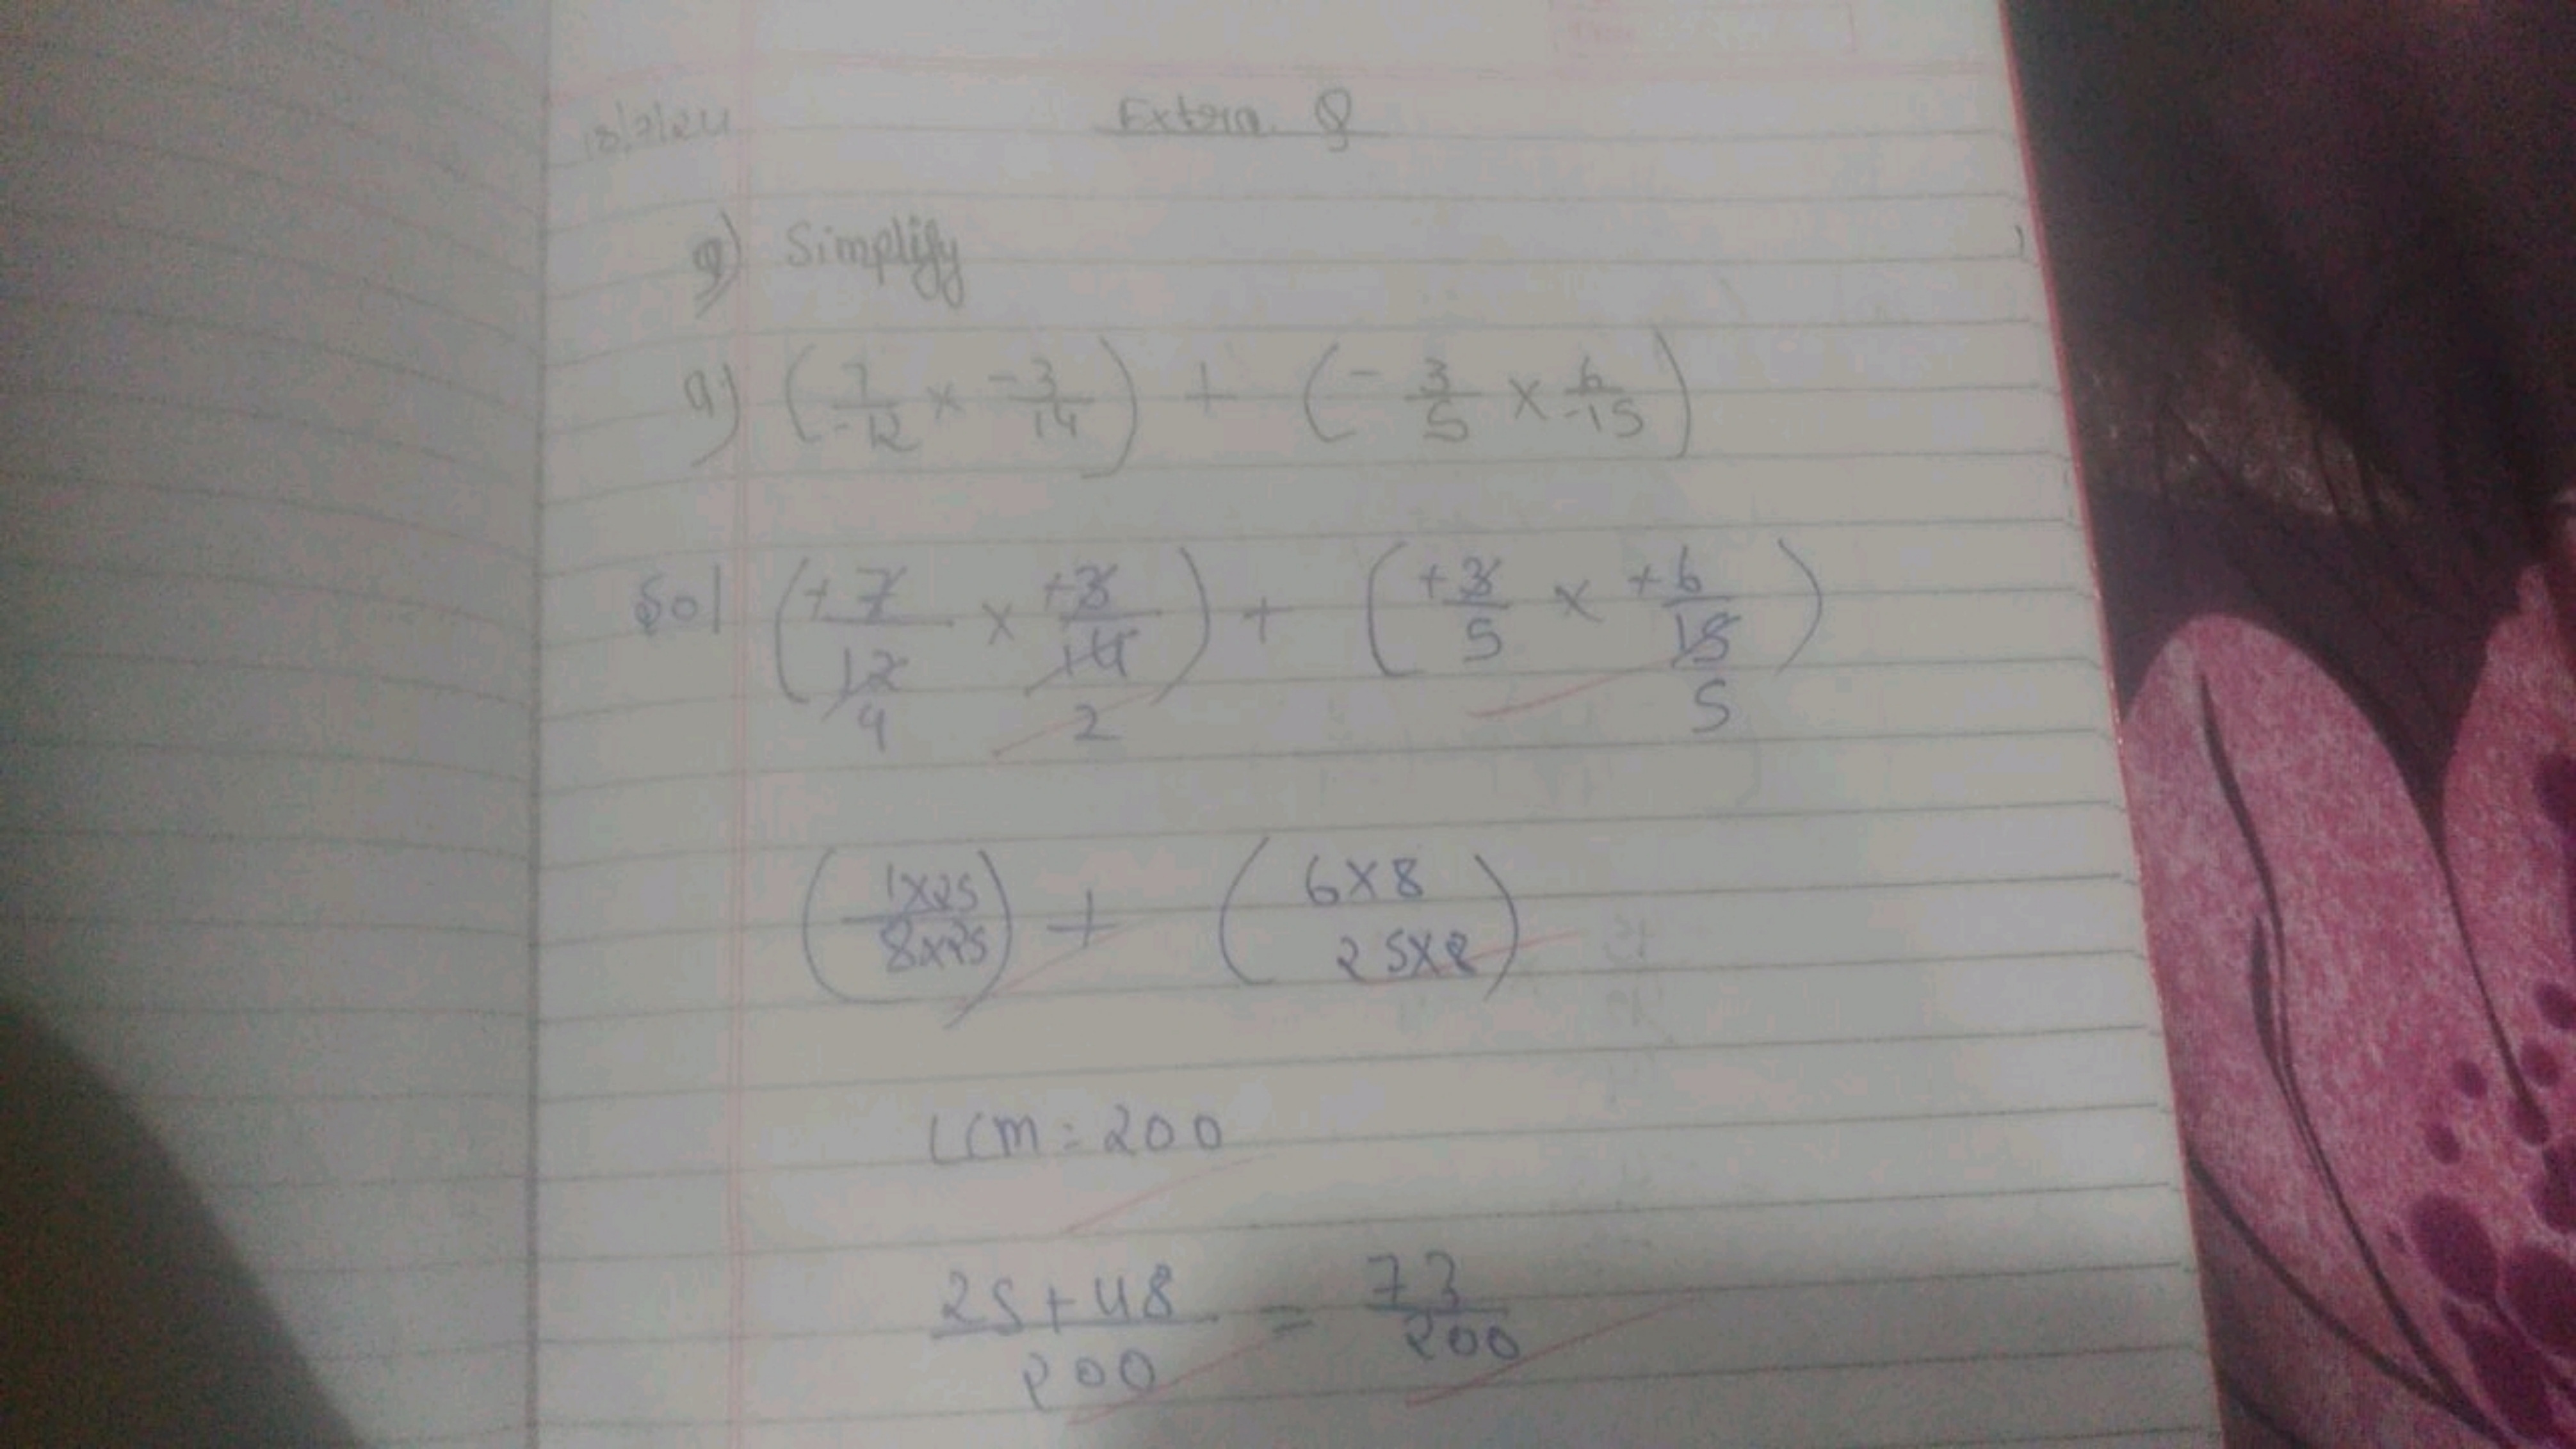 18/7/24 Extra. Q
Q) Simplify
a) (7/-12 × -3/14) + (-3/5 × 6/-15)
Sol (+7/12 × +3/14) + (+3/5 × +6/15)
4 2 5
(1×25/8×25) + (6×8 25×8)
LCM = 200
25+48/200 = 73/200